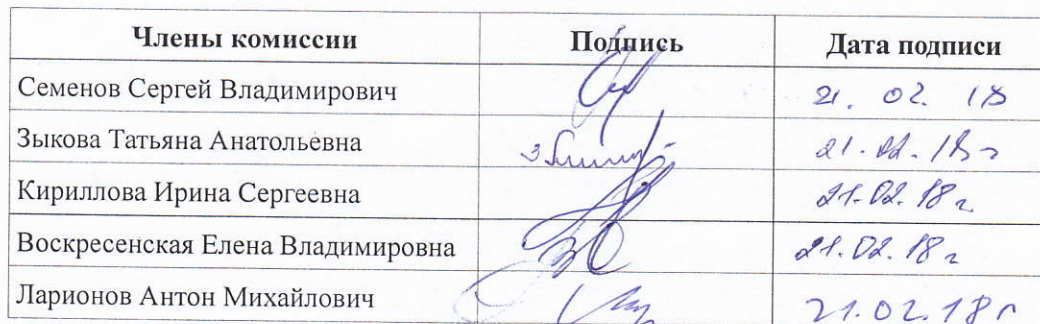 Члены комиссии Подпись Дата подписи
Семенов Сергей Владимирович 21. 02. 18
Зыкова Татьяна Анатольевна 21.02.18г
Кириллова Ирина Сергеевна 21.02.18г
Воскресенская Елена Владимировна 21.02.18г
Ларионов Антон Михайлович 21.02.18г